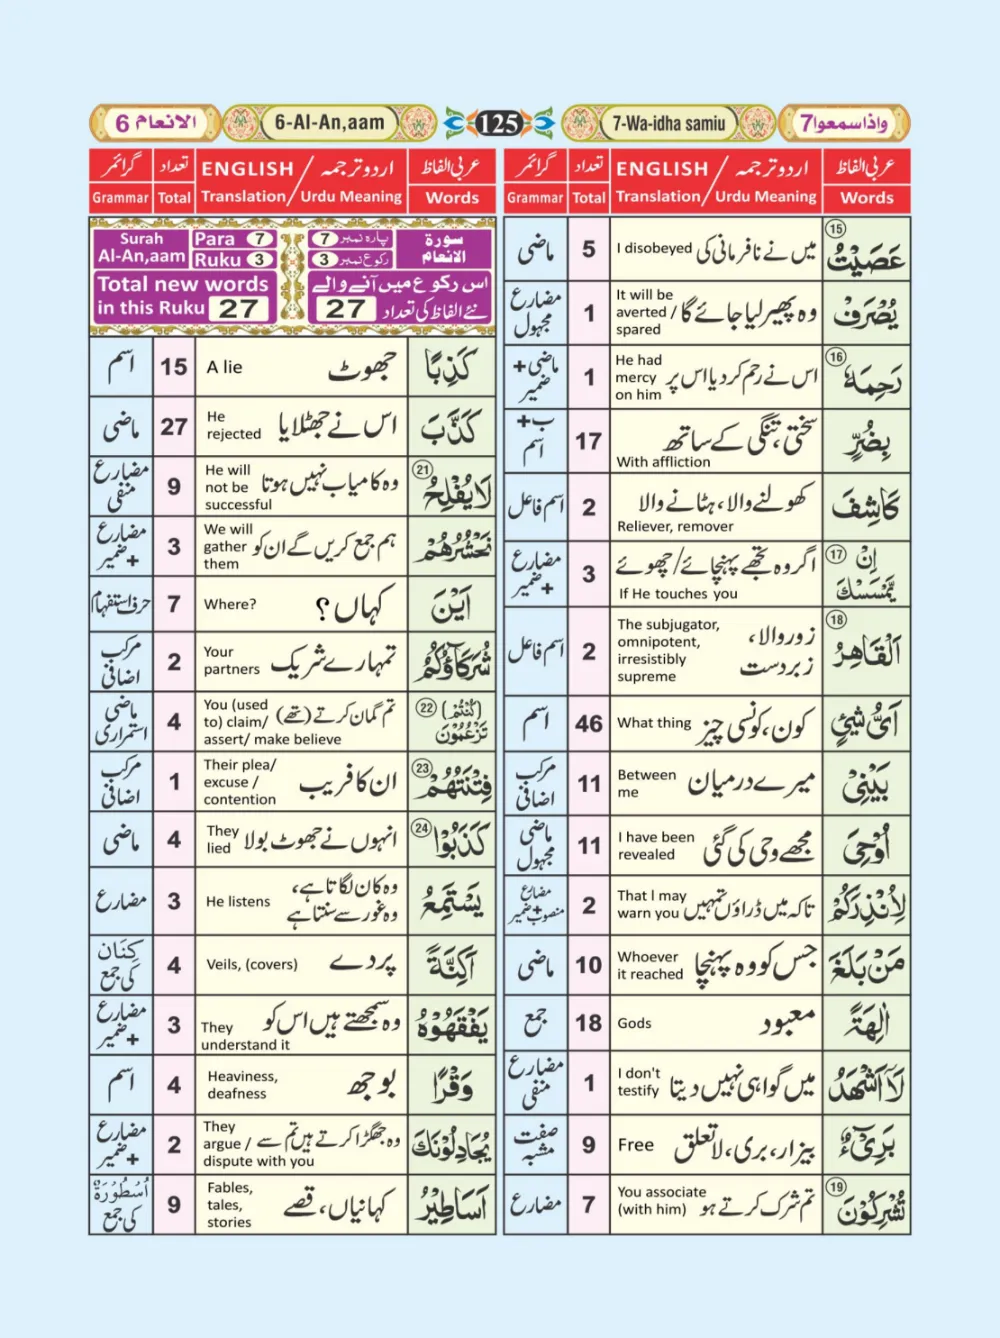 واذاسمعوا7
7-Wa-idha samiu
125
6-Al-An,aam
الانعام 6
عربی الفاظ
اردو ترجمہ / ENGLISH
تعداد
گرائمر
Words
Translation / Urdu Meaning
Total
Grammar
⑮ عَصَيْتُ
میں نے نافرمانی کی
I disobeyed
5
ماضی
يُصْرَفْ
وہ پھیر لیا جائے گا
It will be
averted /
spared
1
مضارع
مجہول
⑯ رَحِمَهٗ
اس نے رحم کر دیا اس پر
He had
mercy
on him
1
ماضی+
ضمیر
بِضُرٍّ
سختی، تنگی کے ساتھ
With affliction
17
ب+
اسم
كَاشِفَ
کھولنے والا، ہٹانے والا
Reliever, remover
2
اسم فاعل
⑰ اِنْ
يَّمْسَسْكَ
اگر وہ تجھے پہنچائے/چھوئے
If He touches you
3
مضارع
+ضمیر
⑱ اَلْقَاهِرُ
زور والا،
زبردست
The subjugator,
omnipotent,
irresistibly
supreme
2
اسم فاعل
اَىُّ شَىْءٍ
کون، کونسی چیز
What thing
46
اسم
بَيْنِىْ
میرے درمیان
Between
me
11
مرکب
اضافی
اُوْحِىَ
مجھے وحی کی گئی
I have been
revealed
11
ماضی
مجہول
لِاُنْذِرَكُمْ
تاکہ میں ڈراؤں تمہیں
That I may
warn you
2
مضارع
منصوب+ضمیر
مَنْ بَلَغَ
جس کو وہ پہنچا
Whoever
it reached
10
ماضی
اٰلِهَةً
معبود
Gods
18
جمع
لَآ اَشْهَدُ
میں گواہی نہیں دیتا
I don't
testify
1
مضارع
منفی
بَرِىْٓءٌ
بیزار، بری، لاتعلق
Free
9
صفت
مشبہ
⑲ تُشْرِكُوْنَ
تم شرک کرتے ہو
You associate
(with him)
7
مضارع
عربی الفاظ
اردو ترجمہ / ENGLISH
تعداد
گرائمر
Words
Translation / Urdu Meaning
Total
Grammar
Surah
Al-An,aam
Para 7
Ruku 3
7 پارہ نمبر
3 رکوع نمبر
سورۃ
الانعام
Total new words
in this Ruku 27
اس رکوع میں آنے والے
نئے الفاظ کی تعداد 27
كَذِبًا
جھوٹ
A lie
15
اسم
كَذَّبَ
اس نے جھٹلایا
He
rejected
27
ماضی
㉑ لَا يُفْلِحُ
وہ کامیاب نہیں ہوتا
He will
not be
successful
9
مضارع
منفی
نَحْشُرُهُمْ
ہم جمع کریں گے ان کو
We will
gather
them
3
مضارع
+ضمیر
اَيْنَ
کہاں؟
Where?
7
حرف استفہام
شُرَكَآؤُكُمْ
تمہارے شریک
Your
partners
2
مرکب
اضافی
㉒ (كُنْتُمْ)
تَزْعُمُوْنَ
تم گمان کرتے (تھے)
You (used
to) claim/
assert/ make believe
4
ماضی
استمراری
㉓ فِتْنَتُهُمْ
ان کا فریب
Their plea/
excuse /
contention
1
مرکب
اضافی
㉔ كَذَبُوْا
انہوں نے جھوٹ بولا
They
lied
4
ماضی
يَسْتَمِعُ
وہ کان لگاتا ہے،
وہ غور سے سنتا ہے
He listens
3
مضارع
اَكِنَّةً
پردے
Veils, (covers)
4
كِنَان
کی جمع
يَفْقَهُوْهُ
وہ سمجھتے ہیں اس کو
They
understand it
3
مضارع
+ضمیر
وَقْرًا
بوجھ
Heaviness,
deafness
4
اسم
يُجَادِلُوْنَكَ
وہ جھگڑا کرتے ہیں تم سے
They
argue /
dispute with you
2
مضارع
+ضمیر
اَسَاطِيْرُ
کہانیاں، قصے
Fables,
tales,
stories
9
اُسْطُوْرَةٌ
کی جمع